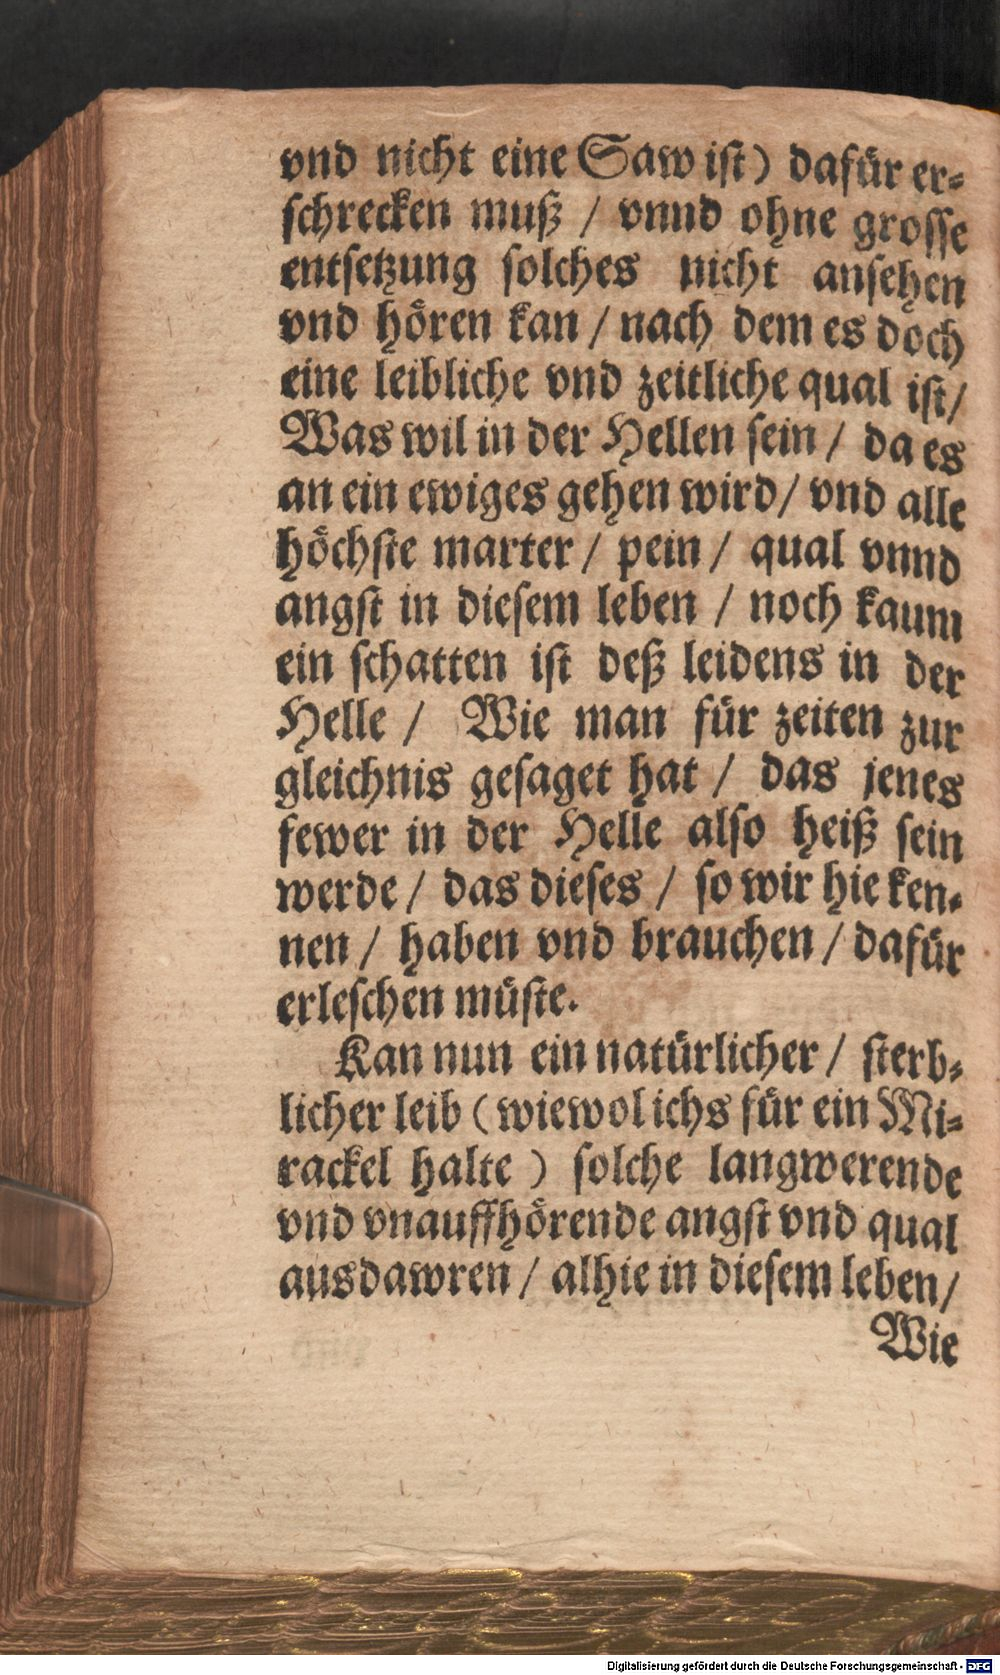 vnd nicht eine Saw ist) dafür er-
schrecken muß / vnnd ohne grosse
entsetzung solches nicht ansehen
vnd hören kan / nach dem es doch
eine leibliche vnd zeitliche qual ist/
Was wil in der Hellen sein / da es
an ein ewiges gehen wird/ vnd alle
höchste marter / pein / qual vnnd
angst in diesem leben / noch kaum
ein schatten ist deß leidens in der
Helle / Wie man für zeiten zur
gleichnis gesaget hat / das jenes
fewer in der Helle also heiß sein
werde / das dieses / so wir hie ken-
nen / haben vnd brauchen / dafür
erleschen müste.
Kan nun ein natürlicher / sterb-
licher leib ( wiewol ichs für ein Mi-
rackel halte ) solche langwerende
vnd vnauffhörende angst vnd qual
ausdawren / alhie in diesem leben/
Wie
Digitalisierung gefördert durch die Deutsche Forschungsgemeinschaft - DFG